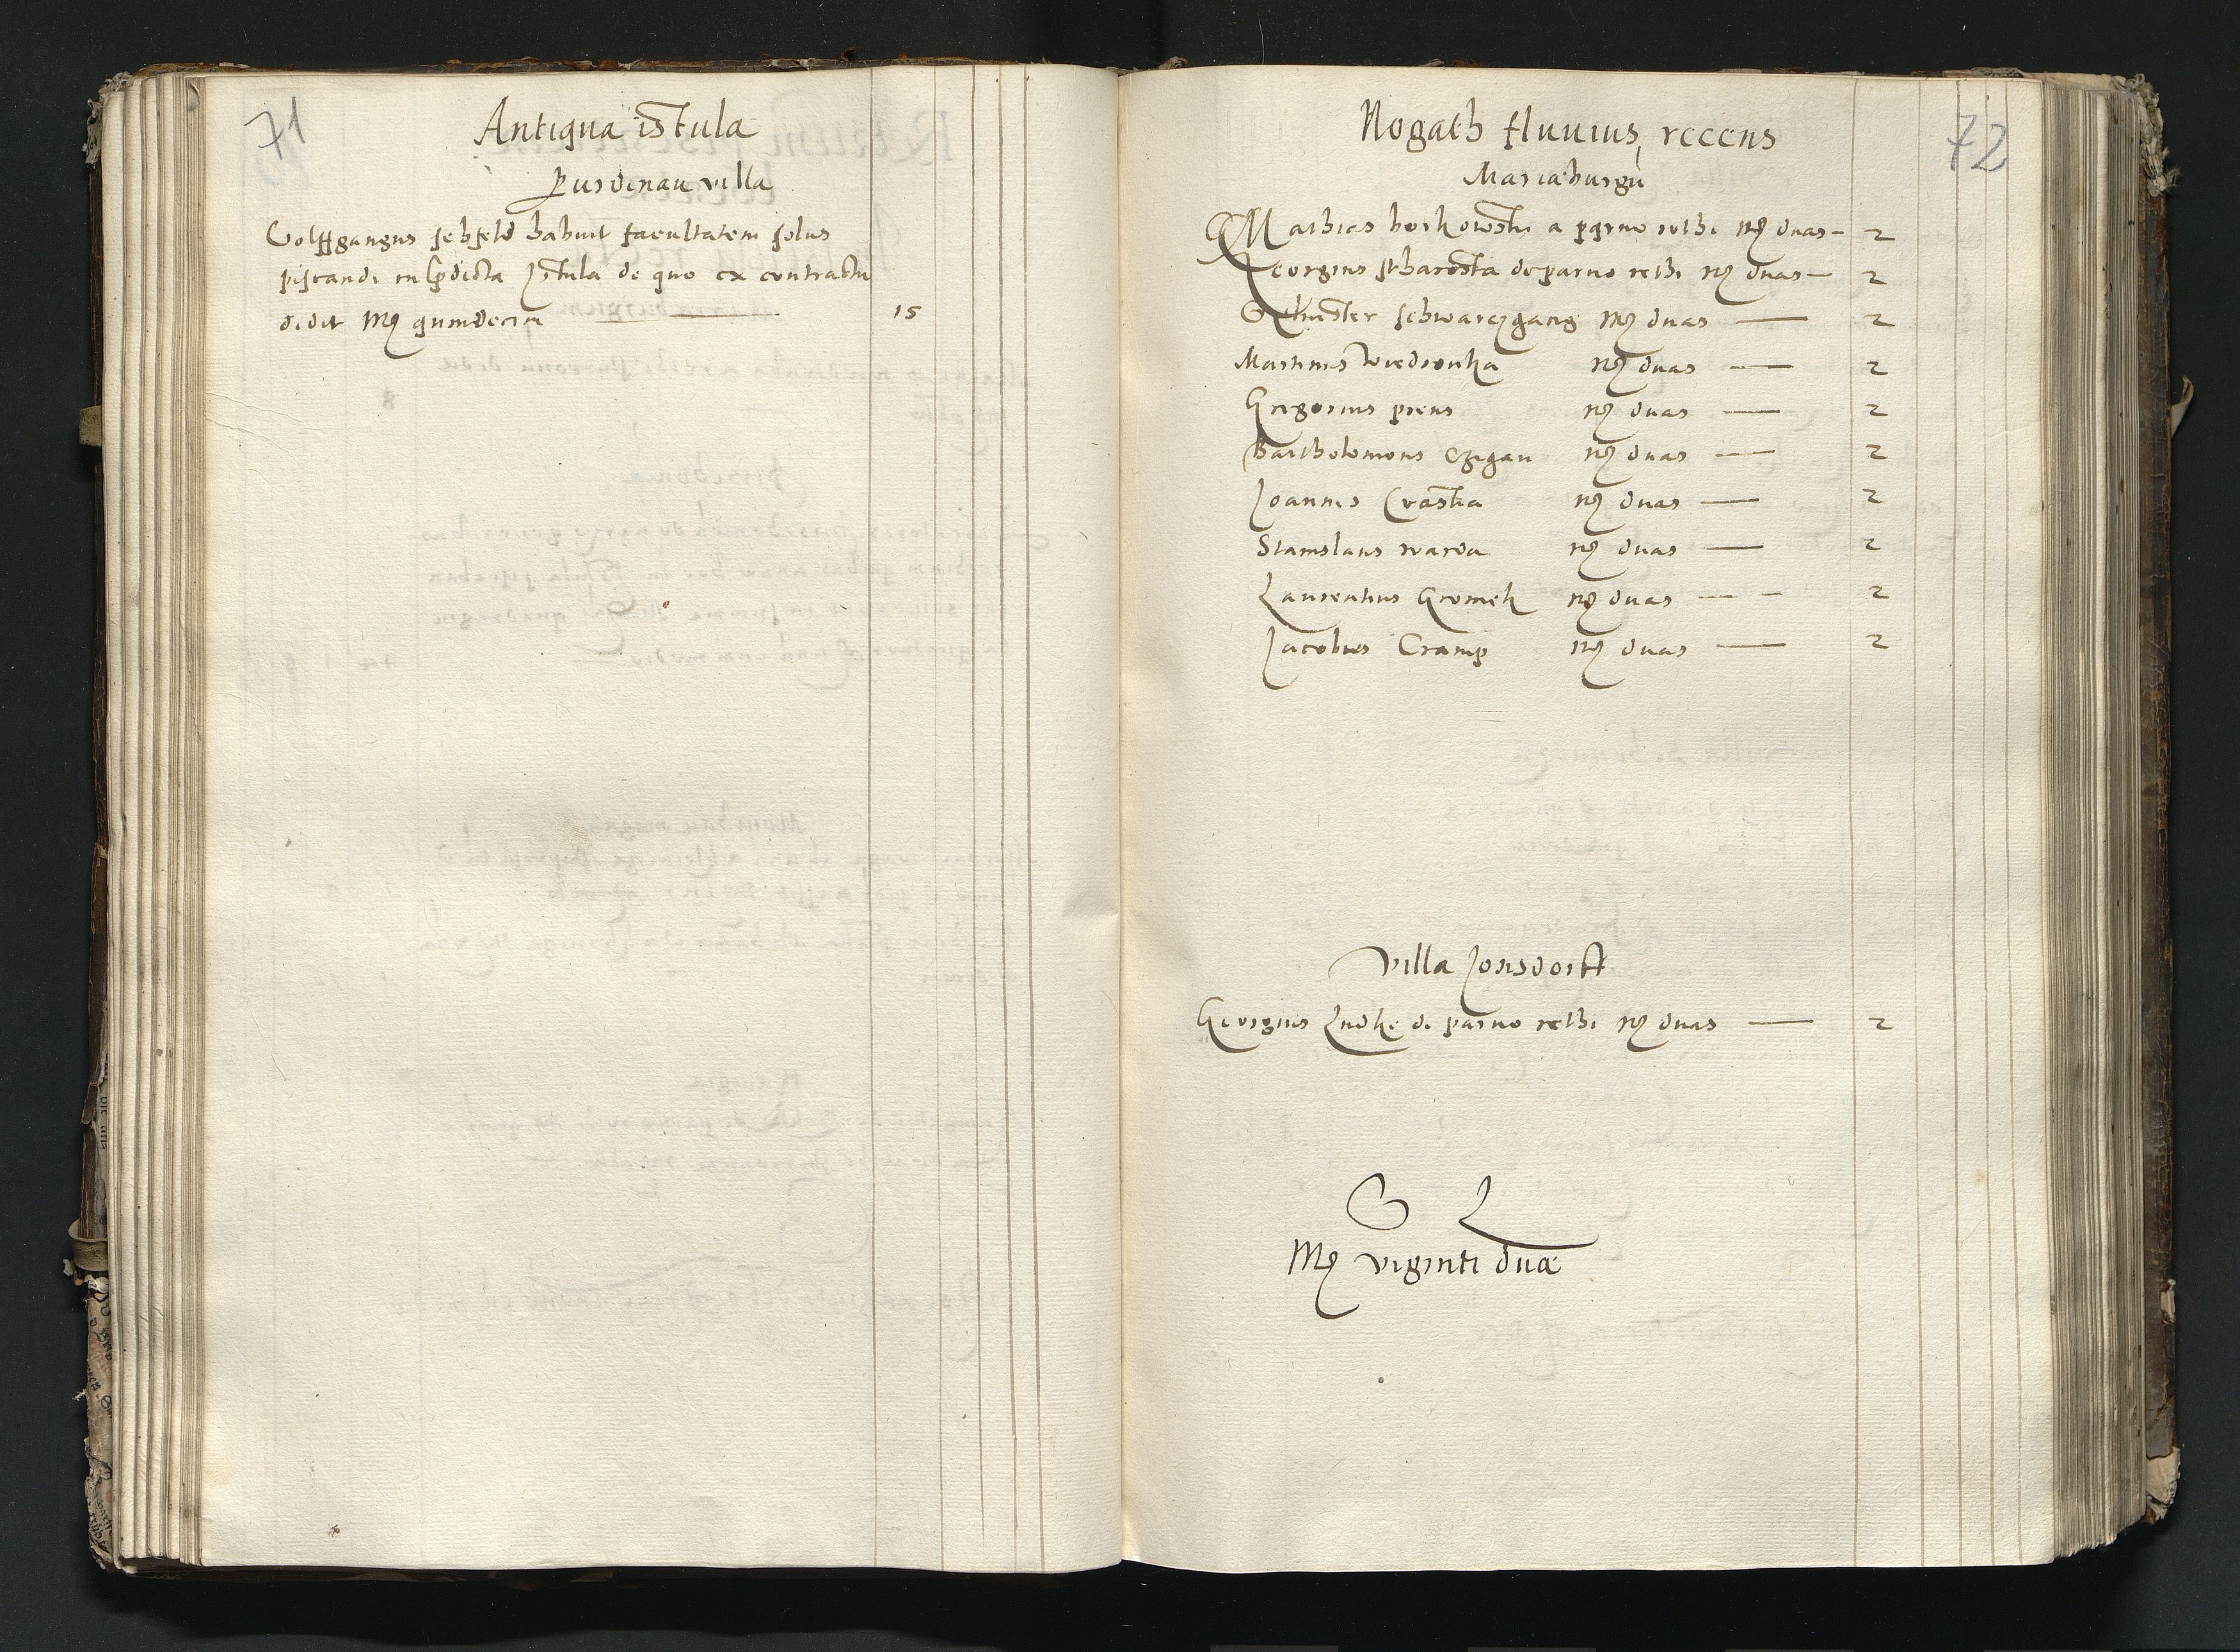 71
Antiqua istula
Purdenau villa
Volffgangus sehfeld habuit facultatem solus
piscandi in pdicta Istula de quo ex contractu
dedit Mg quindecim — 15
72
Nogath fluvius, recens
Mariæburgu
Mathias borkowsky a parvo rethi Mg duas — 2
Georgius starosta de parvo rethi Mg duas — 2
Schwarczgang Mg duas — 2
Martinus Mg duas — 2
Gregorius preus Mg duas — 2
Bartholomeus Czigan Mg duas — 2
Joannes Crastia Mg duas — 2
Stanislaus warda Mg duas — 2
Laurentius Gromek Mg duas — 2
Jacobus Cramp Mg duas — 2
Villa Jonsdorff
Georgius Ludke de parvo rethi Mg duas — 2
S L
Mg viginti duæ